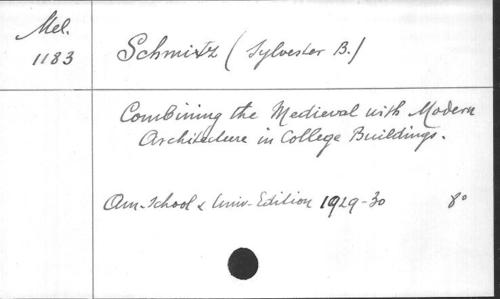 Mel.
1183
Schmitz (Sylvester B.)
Combining the Medieval with Modern
Architecture in College Buildings.
Am. School & Univ. Edition 1929-30 8°